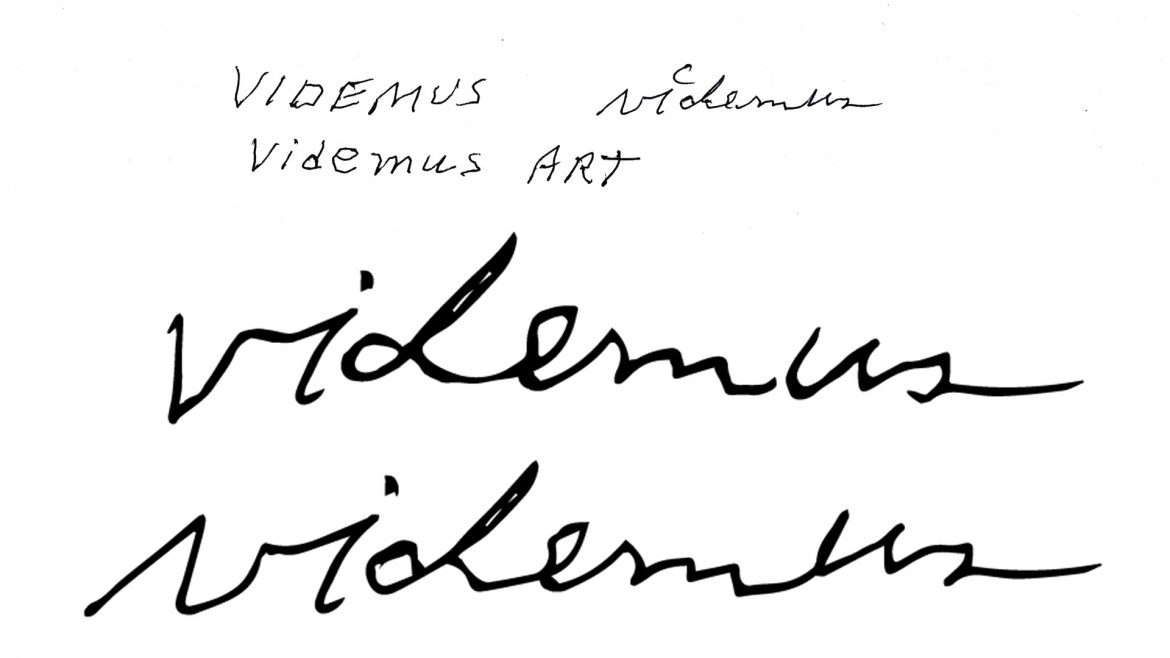 VIDEMUS videmus
Videmus ART
videmus
videmus